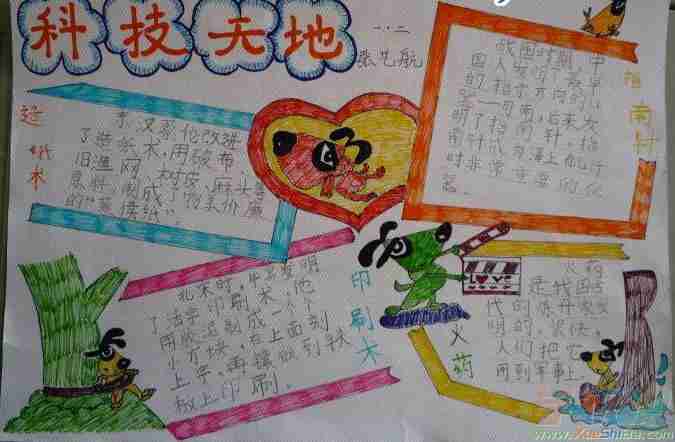 科技天地
一·二
张艺航
造纸术
东汉蔡伦改进
了造纸术,用破布、
旧渔网、树皮、麻头等
原料,制成了物美价廉
的"蔡侯纸"。
指南针
战国时期,中
国人发明了最早
的指示方向的
明了指南针,指
南针
时非常重要的仪
器。
印刷术
北宋时,毕昇发明
了活字印刷术,他
用胶泥制成一个个
小方块,在上面刻
上字,再镶嵌到铁
板上印刷。
LOVE
火药
火药
是我国古
代的炼丹家发
明的,很快,
人们把它
用到军事上。
www.XueShiBa.com